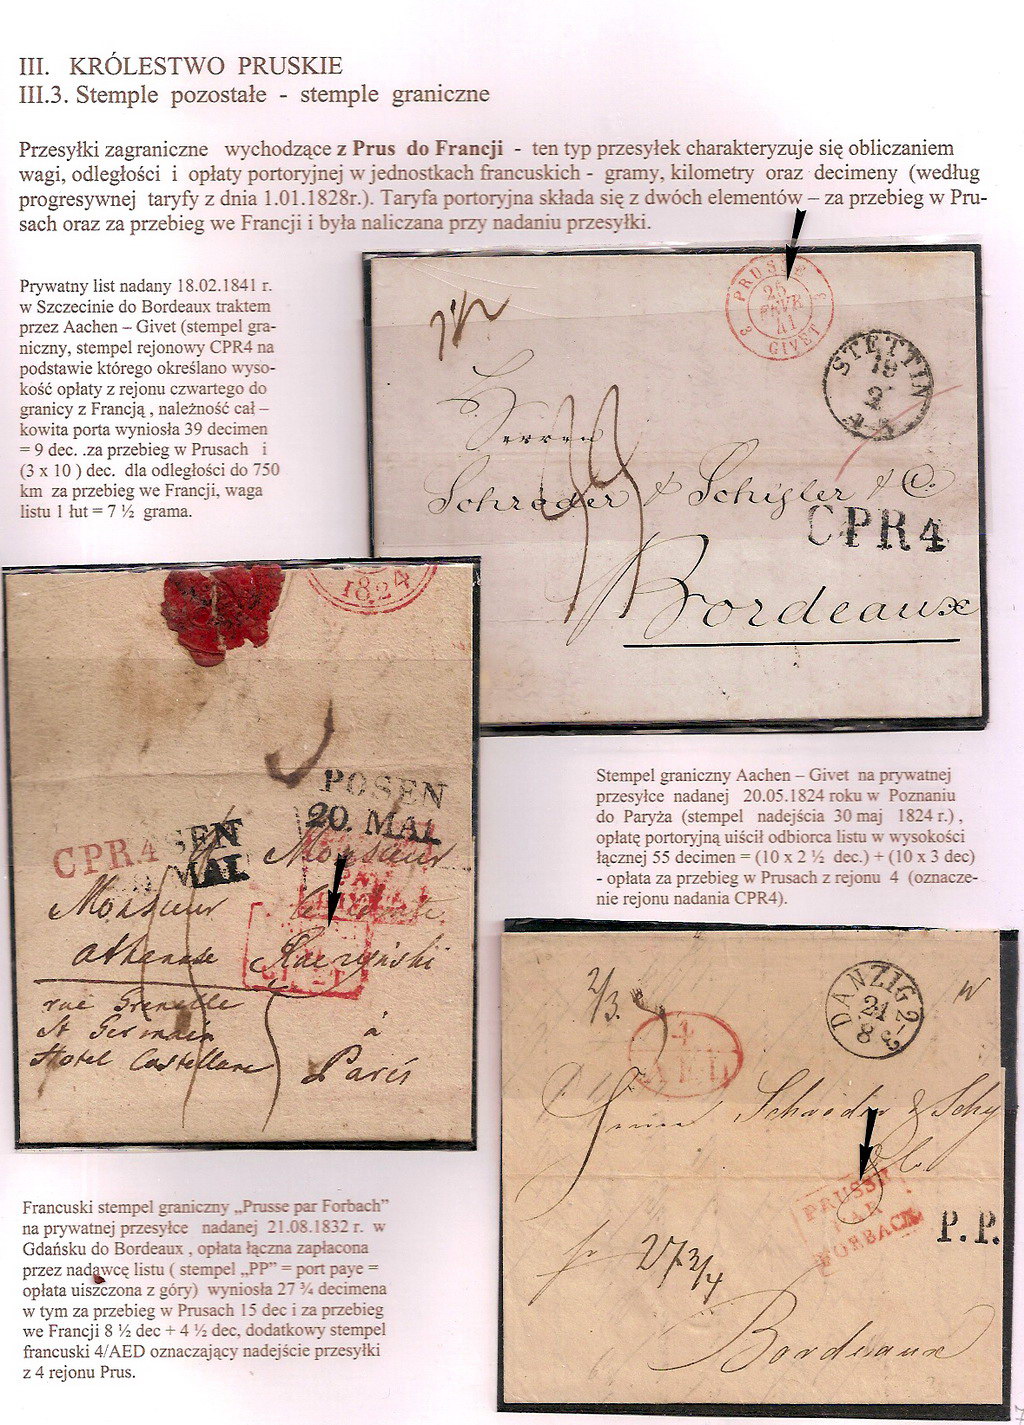 III. KRÓLESTWO PRUSKIE
III.3. Stemple pozostałe - stemple graniczne
Przesyłki zagraniczne wychodzące z Prus do Francji - ten typ przesyłek charakteryzuje się obliczaniem
wagi, odległości i opłaty portoryjnej w jednostkach francuskich - gramy, kilometry oraz decimeny (według
progresywnej taryfy z dnia 1.01.1828r.). Taryfa portoryjna składa się z dwóch elementów – za przebieg w Pru-
sach oraz za przebieg we Francji i była naliczana przy nadaniu przesyłki.
Prywatny list nadany 18.02.1841 r.
w Szczecinie do Bordeaux traktem
przez Aachen – Givet (stempel gra-
niczny, stempel rejonowy CPR4 na
podstawie którego określano wyso-
kość opłaty z rejonu czwartego do
granicy z Francją , należność cał –
kowita porta wyniosła 39 decimen
= 9 dec. .za przebieg w Prusach i
(3 x 10 ) dec. dla odległości do 750
km za przebieg we Francji, waga
listu 1 łut = 7 ½ grama.
PRUSSE
25
FEVR
41
3 GIVET 3
STETTIN
19
2
Herren
Schröder & Schÿler & C.
CPR4
Bordeaux
1824
POSEN
20. MAI
CPR4
SEN
MAI
Monsieur
Monsieur
le Comte
Athanase Raczyński
rue Grenelle
St Germain
Hotel Castellane
à
Paris
Stempel graniczny Aachen – Givet na prywatnej
przesyłce nadanej 20.05.1824 roku w Poznaniu
do Paryża (stempel nadejścia 30 maj 1824 r.) ,
opłatę portoryjną uiścił odbiorca listu w wysokości
łącznej 55 decimen = (10 x 2 ½ dec.) + (10 x 3 dec)
- opłata za przebieg w Prusach z rejonu 4 (oznacze-
nie rejonu nadania CPR4).
2/3.
DANZIG 2-3
21
8
4
AED
Schröder & Schÿ
PRUSSE
PAR
FORBACK
P.P.
27 3/4
Bordeaux
Francuski stempel graniczny „Prusse par Forbach”
na prywatnej przesyłce nadanej 21.08.1832 r. w
Gdańsku do Bordeaux , opłata łączna zapłacona
przez nadawcę listu ( stempel „PP” = port paye =
opłata uiszczona z góry) wyniosła 27 ¾ decimena
w tym za przebieg w Prusach 15 dec i za przebieg
we Francji 8 ½ dec + 4 ½ dec, dodatkowy stempel
francuski 4/AED oznaczający nadejście przesyłki
z 4 rejonu Prus.